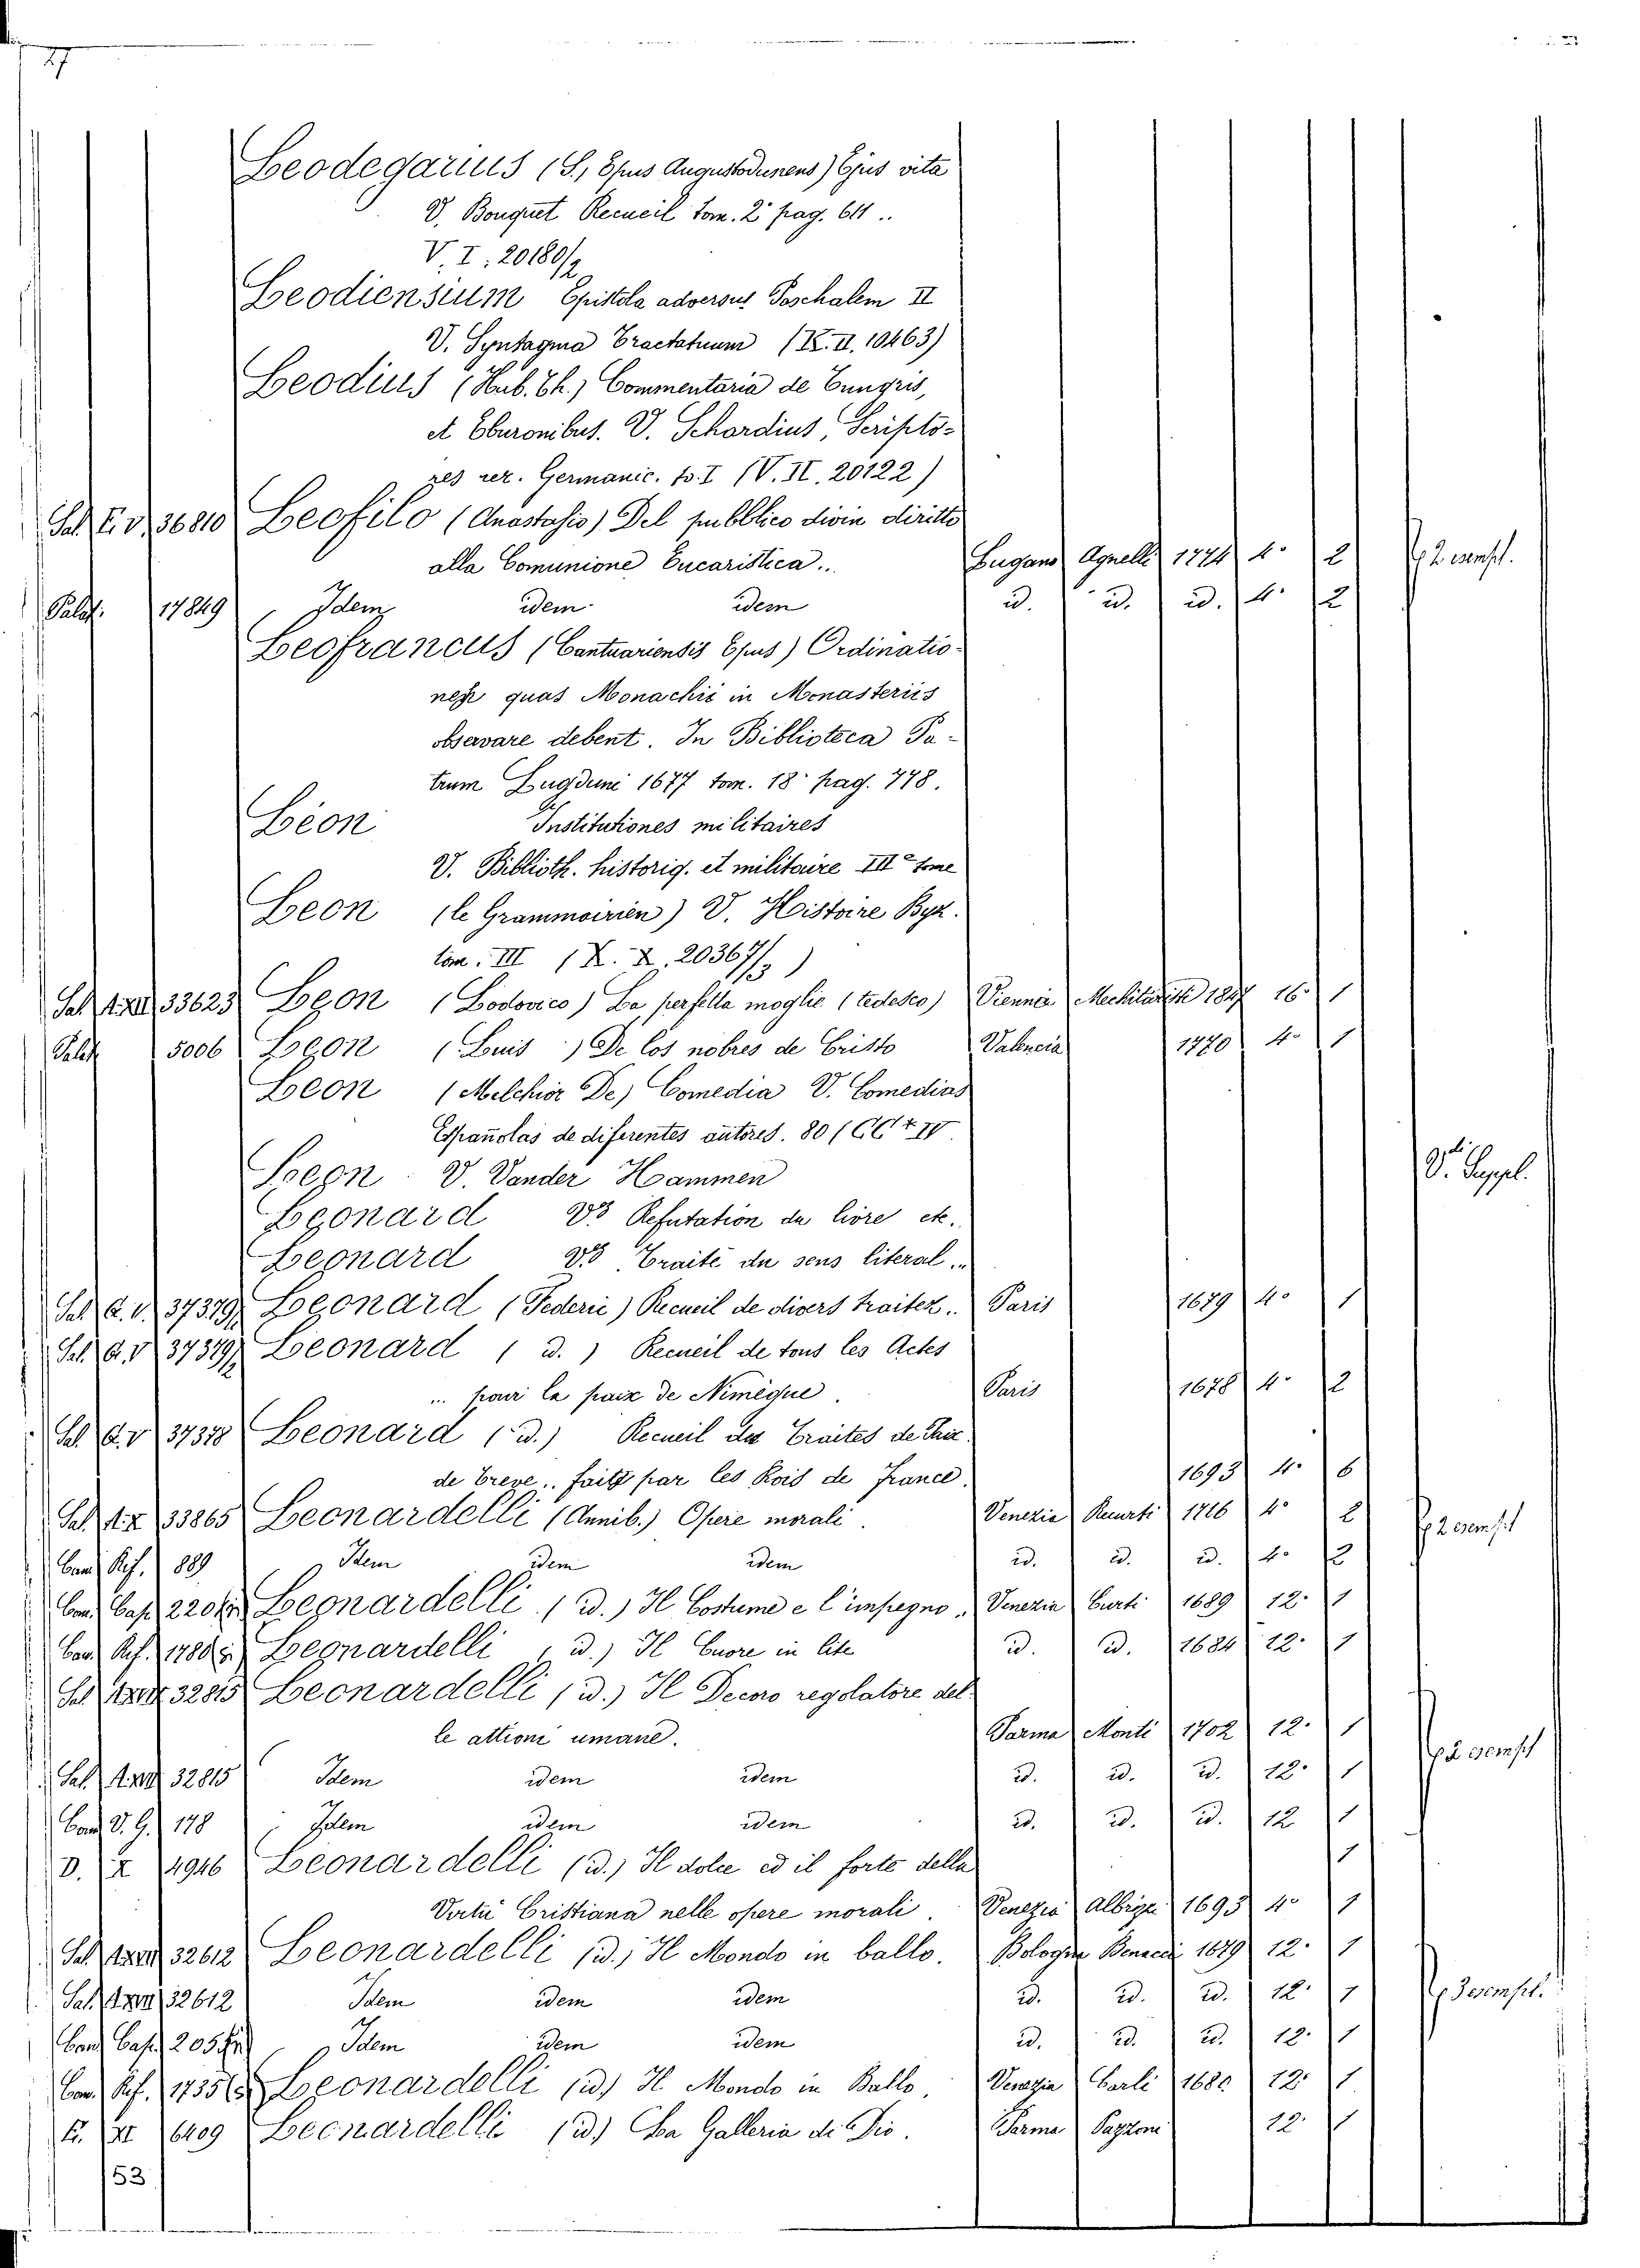 27
Leodegarius (S, Epus Augustodunens) Ejus vita
V. Bouquet Recueil tom. 2° pag. 611..
V. I. 20180/2
Leodiensium Epistola adversus Paschalem II
V. Syntagma Tractatuum (K. II. 10463)
Leodius (Hub. Th.) Commentaria de Tungris,
et Eburonibus. V. Schardius, Scripto-
res rer. Germanic. to. I (V. II. 20122)
Sal. E. V. 36810 Leofilo (Anastasio) Del pubblico divin diritto
alla Comunione Eucaristica.. Lugano Agnelli 1774 4° 2 2 esempl.
Palat. 17849 Idem idem idem id. id. id. 4° 2
Leofrancus (Cantuariensis Epus) Ordinatio-
nes quas Monachi in Monasteriis
observare debent. In Biblioteca Pa-
trum Lugduni 1677 tom. 18° pag. 778.
Léon Institutiones militaires
V. Biblioth. historiq. et militaire III° tome
Leon (le Grammairien) V. Histoire Byz.
tom. III (X. X. 20367/3)
Sal. 33623 Leon (Lodovico) La perfetta moglie (tedesco) Vienna Mechitarist 1847 16° 1
Palat. 5006 Leon (Luis) De los nobres de Cristo Valencia 1770 4° 1
Leon (Melchior De) Comedia V. Comedias
Españolas de diferentes autores. 80 (CC + IV
Leon V. Vander Hammen V. Suppl.
Leonard V. Refutation du livre etc.
Leonard V. Traité du sens literal..
Sal. A. V. 37379 Leonard (Federic) Recueil de divers traitez.. Paris 1679 4° 1
Sal. A. V 37379 Leonard (id.) Recueil de tous les Actes
... pour la paix de Nimègue. Paris 1678 4° 2
Sal. A. V 37378 Leonard (id.) Recueil des Traites de Paix.
de Treve.. faits par les Rois de France. 1693 4° 6
Sal. A. X 33865 Leonardelli (Annib.) Opere morali. Venezia Recurti 1716 4° 2 2 esempl
Cam. Rif. 889 Idem idem idem id. id. id. 4° 2
Cam. Cap. 220 Leonardelli (id.) Il Costume e l'impegno.. Venezia Curti 1689 12° 1
Cam. Rif. 1780 Leonardelli (id.) Il Cuore in lite id. id. 1684 12° 1
Sal. 32815 Leonardelli (id.) Il Decoro regolatore del-
le attioni umane. Parma Monti 1702 12° 1 2 esempl
Sal. 32815 Idem idem idem id. id. id. 12° 1
Cam. V. G. 178 Idem idem idem id. id. id. 12 1
D. X 4946 Leonardelli (id.) Il dolce ed il forte della 1
Virtù Cristiana nelle opere morali. Venezia Albrizzi 1693 4° 1
Sal. 32612 Leonardelli (id.) Il Mondo in ballo. Bologna Benacci 1679 12° 1
Sal. 32612 Idem idem idem id. id. id. 12° 1 3 esempl.
Cam. Cap. 205 Idem idem idem id. id. id. 12° 1
Cam. Rif. 1735 Leonardelli (id.) Il Mondo in Ballo. Venezia Carli 1680 12° 1
E. XI 6409 Leonardelli (id.) La Galleria di Dio. Parma Pazzoni 12° 1
53